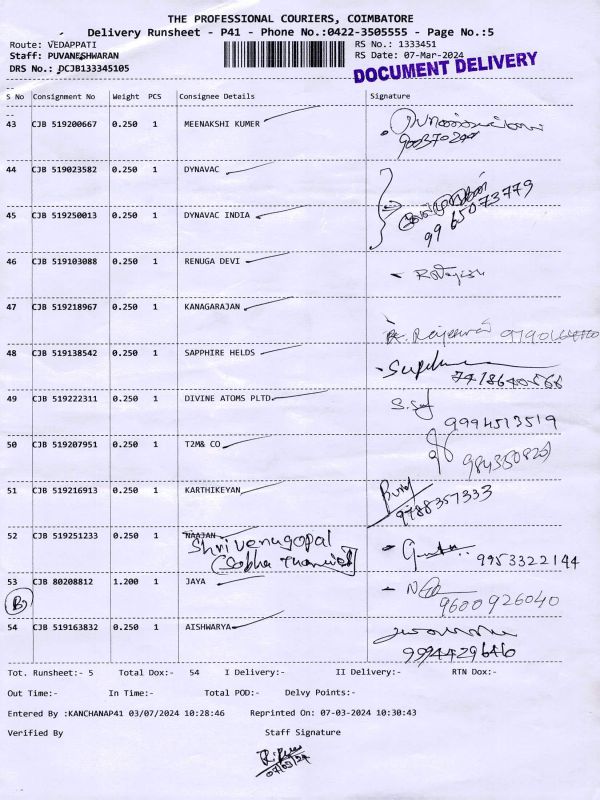 THE PROFESSIONAL COURIERS, COIMBATORE
Delivery Runsheet - P41 - Phone No.:0422-3505555 - Page No.:5
Route: VEDAPPATI RS No.: 1333451
Staff: PUVANESHWARAN RS Date: 07-Mar-2024
DRS No.: DCJB133345105
DOCUMENT DELIVERY
S No Consignment No Weight PCS Consignee Details Signature
43 CJB 519200667 0.250 1 MEENAKSHI KUMER
44 CJB 519023582 0.250 1 DYNAVAC
45 CJB 519250013 0.250 1 DYNAVAC INDIA
99 65073779
46 CJB 519103088 0.250 1 RENUGA DEVI
47 CJB 519218967 0.250 1 KANAGARAJAN
48 CJB 519138542 0.250 1 SAPPHIRE HELDS
49 CJB 519222311 0.250 1 DIVINE ATOMS PLTD
9994513519
50 CJB 519207951 0.250 1 T2M& CO
51 CJB 519216913 0.250 1 KARTHIKEYAN
9788357333
52 CJB 519251233 0.250 1 NAAJAN
Shrivenugopal
9953322144
53 CJB 80208812 1.200 1 JAYA
B
9600926040
54 CJB 519163832 0.250 1 AISHWARYA
9994429646
Tot. Runsheet:- 5 Total Dox:- 54 I Delivery:- II Delivery:- RTN Dox:-
Out Time:- In Time:- Total POD:- Delvy Points:-
Entered By :KANCHANAP41 03/07/2024 10:28:46 Reprinted On: 07-03-2024 10:30:43
Verified By Staff Signature
07/03/24